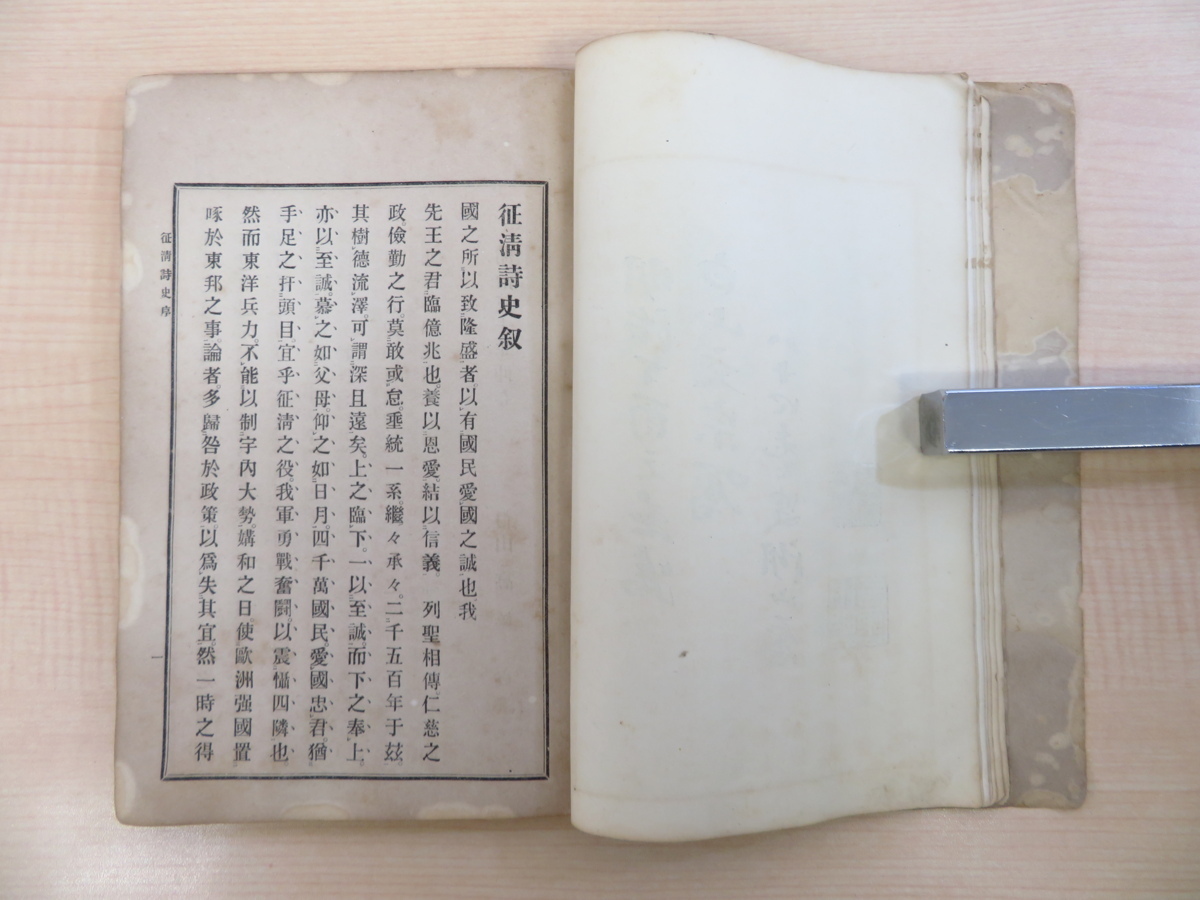 征淸詩史叙
國之所以致隆盛者以有國民愛國之誠也我
先王之君臨億兆也養以恩愛結以信義。 列聖相傳仁慈之
政儉勤之行莫敢或怠。垂統一系。繼々承々。二千五百年于玆。
其樹德流澤。可謂深且遠矣。上之臨下。一以至誠。而下之奉上。
亦以至誠。慕之如父母。仰之如日月。四千萬國民。愛國忠君。猶
手足之扞頭目。宜乎征淸之役。我軍勇戰奮鬪。以震慴四隣也。
然而東洋兵力。不能以制宇內大勢。媾和之日。使歐洲强國置
啄於東邦之事。論者多歸咎於政策。以爲失其宜。然一時之得
征淸詩史序
一